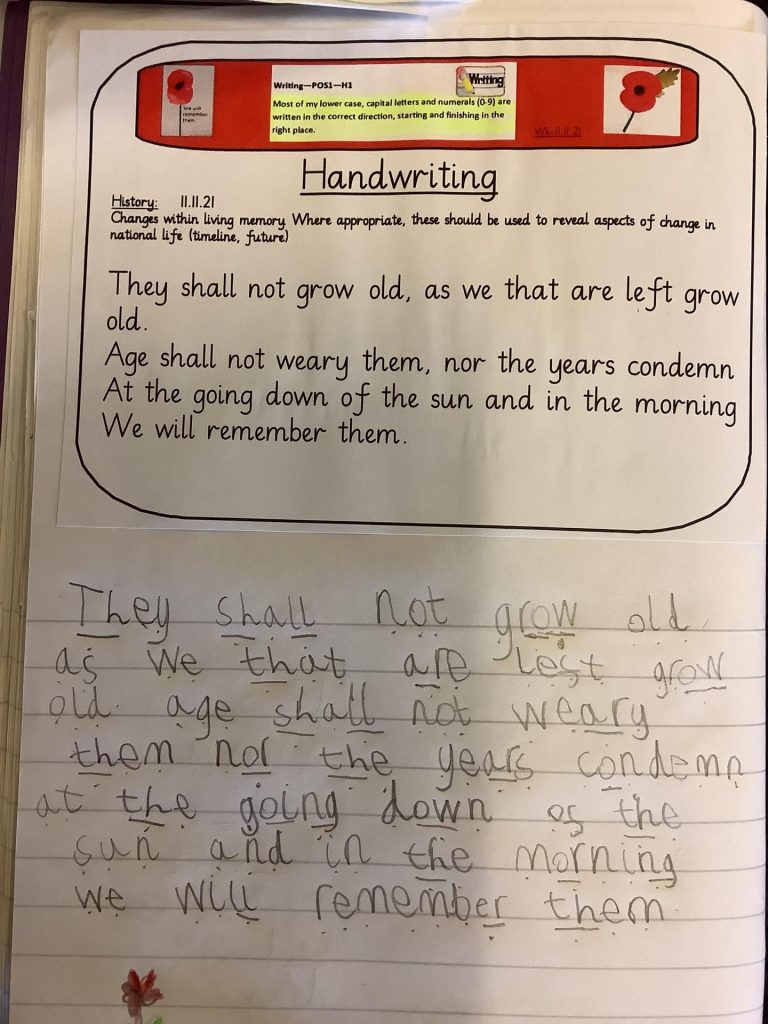 We will
remember
them
Writing—POS1—H1
Writing
Most of my lower case, capital letters and numerals (0-9) are
written in the correct direction, starting and finishing in the
right place.
Wk-11.11.21
Handwriting
History: 11.11.21
Changes within living memory. Where appropriate, these should be used to reveal aspects of change in
national life (timeline, future)
They shall not grow old, as we that are left grow
old.
Age shall not weary them, nor the years condemn
At the going down of the sun and in the morning
We will remember them.
They shall not grow old
as we that are lest grow
old. age shall not weary
them nor the years condemn
at the going down os the
sun and in the morning
we will remember them